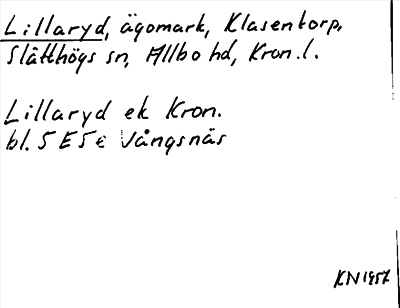 Lillaryd, ägomark, Klasentorp,
Slätthögs sn, Allbo hd, Kron.l.
Lillaryd ek Kron.
bl. 5 E 5 e Vångsnäs
KN 1957